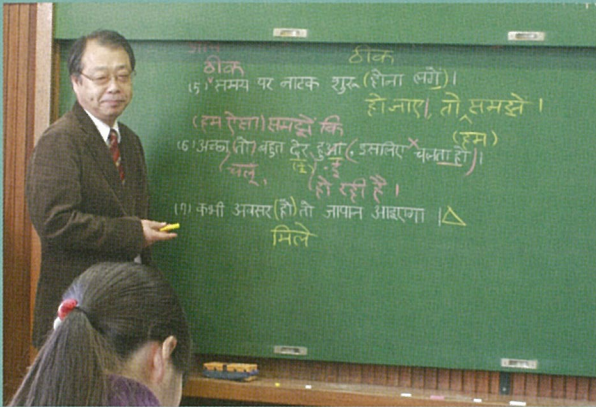 आप
ठीक ठीक
(5) समय पर नाटक शुरू (होना लगे)।
हो जाए।, तो समझे।
(हम ऐसा) समझे कि (हम)
(6) अच्छा (तो) बहुत देर हुआ (, इसलिए चलता हो)।
(चलूँ, हुई
हो रही है।
(7) कभी अवसर (हो) तो जापान आइएगा।
मिले